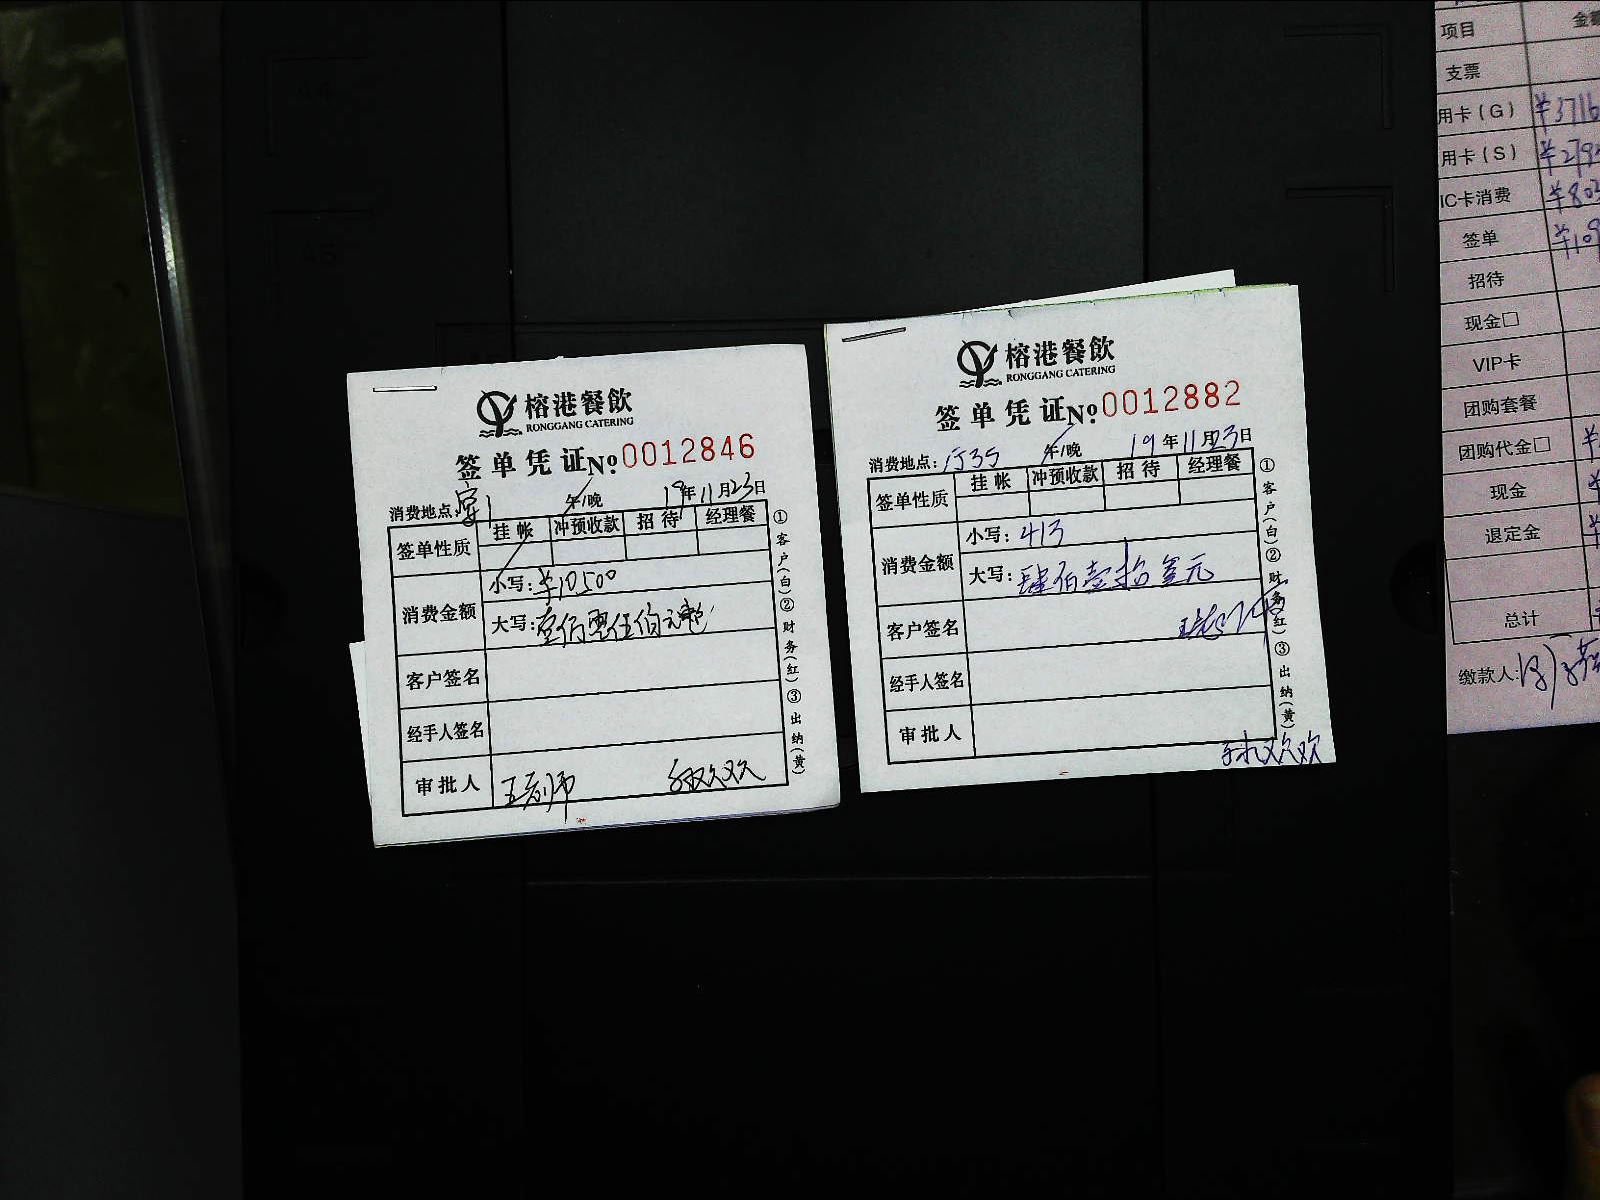 榕港餐飲
RONGGANG CATERING
签单凭证 No 0012846
消费地点:宴1 午/晚 19年11月23日
签单性质 挂帐 冲预收款 招待 经理餐
消费金额 小写:¥10500
大写:
客户签名
经手人签名
审批人
①客户(白)②财务(红)③出纳(黄)
榕港餐飲
RONGGANG CATERING
签单凭证 No 0012882
消费地点:厅35 午/晚 19年11月23日
签单性质 挂帐 冲预收款 招待 经理餐
消费金额 小写:413
大写:肆佰壹拾叁元
客户签名
经手人签名
审批人
①客户(白)②财务(红)③出纳(黄)
项目
支票
用卡(G)
用卡(S)
IC卡消费
签单
招待
现金□
VIP卡
团购套餐
团购代金□
现金
退定金
总计
缴款人: